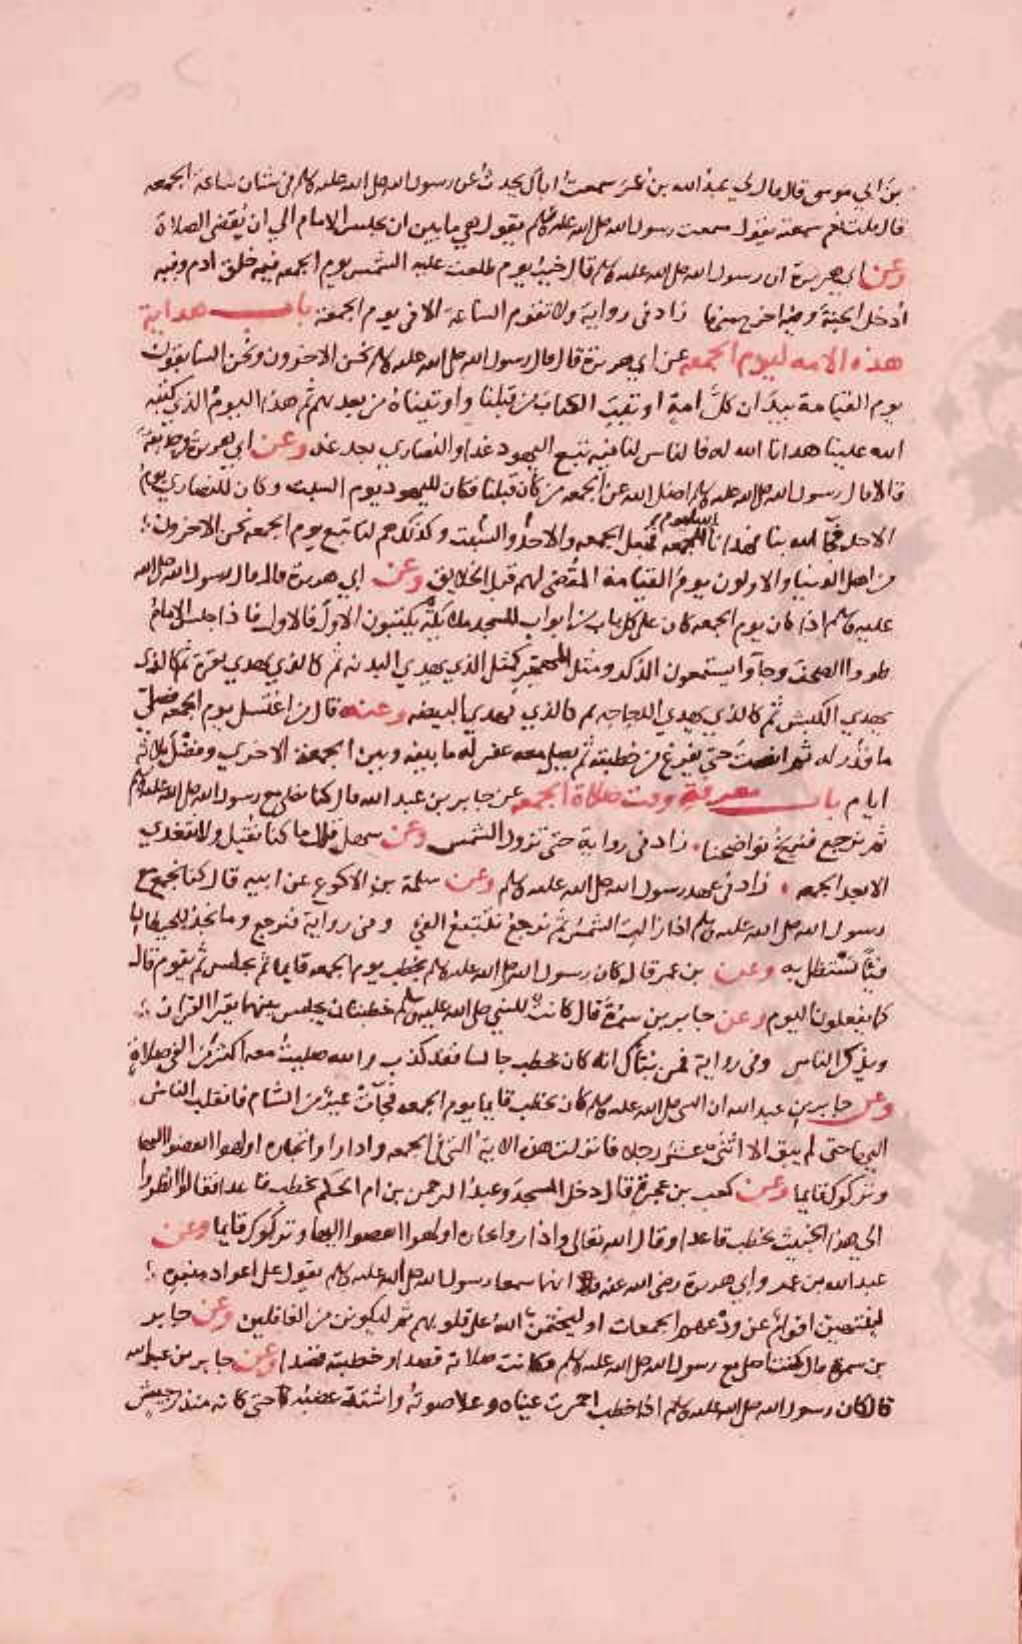 بن ابي موسى قال قال لي عبد الله بن عمر سمعت اباك يحدث عن رسول الله صلى الله عليه وسلم في شان ساعة الجمعه
قال قلت نعم سمعته يقول سمعت رسول الله صلى الله عليه وسلم يقول هي ما بين ان يجلس الامام الي ان يقضى الصلاة
وعن ابي هريرة ان رسول الله صلى الله عليه وسلم قال خير يوم طلعت عليه الشمس يوم الجمعه فيه خلق ادم وفيه
أدخل الجنة وفيه اخرج منها زاد في رواية ولا تقوم الساعة الا في يوم الجمعة باب هداية
هذه الامه ليوم الجمعه عن ابي هريرة قال قال رسول الله صلى الله عليه وسلم نحن الاخرون ونحن السابقون
يوم القيامة بيد ان كل امة اوتيت الكتاب من قبلنا واوتيناه من بعدهم ثم هذا اليوم الذي كتبه
الله علينا هدانا الله له فالناس لنا فيه تبع اليهود غدا والنصاري بعد غد وعن ابي هريرة وحذيفة
قالا قال رسول الله صلى الله عليه وسلم اضل الله عن الجمعه من كان قبلنا فكان لليهود يوم السبت وكان للنصاري يوم
الاحد فجا الله بنا فهدانا ليوم الجمعه فجعل الجمعه والاحد والسبت وكذلك هم لنا تبع يوم الجمعه نحن الاخرون
من اهل الدنيا والاولون يوم القيامة المقضى لهم قبل الخلايق وعن ابي هريرة قال قال رسول الله صلى الله
عليه وسلم اذا كان يوم الجمعه كان على كل باب من ابواب المسجد ملايكة يكتبون الاول فالاول فاذا جلس الامام
طووا الصحف وجاوا يستمعون الذكر ومثل المهجر كمثل الذي يهدي البدنه ثم كالذي يهدي بقرة ثم كالذي
يهدي الكبش ثم كالذي يهدي الدجاجه ثم كالذي يهدي البيضه وعنه قال من اغتسل يوم الجمعه فصلى
ما قدر له ثم انصت حتى يفرغ من خطبته ثم يصلي معه غفر له ما بينه وبين الجمعة الاخري وفضل ثلاثة
ايام باب معرفة وقت صلاة الجمعه عن جابر بن عبد الله قال كنا نصلي مع رسول الله صلى الله عليه وسلم
ثم نرجع فنريح نواضحنا زاد في رواية حتى تزول الشمس وعن سهل قال ما كنا نقيل ولا نتغدي
الا بعد الجمعه زاد في عهد رسول الله صلى الله عليه وسلم وعن سلمة بن الاكوع عن ابيه قال كنا نجمع مع
رسول الله صلى الله عليه وسلم اذا زالت الشمس ثم نرجع نتتبع الفي وفي رواية فنرجع وما نجد للحيطان
فيئا نستظل به وعن بن عمر قال كان رسول الله صلى الله عليه وسلم يخطب يوم الجمعه قايما ثم يجلس ثم يقوم قال
كما يفعلون اليوم وعن جابر بن سمرة قال كانت للنبي صلى الله عليه وسلم خطبتان يجلس بينهما يقرا القران
ويذكر الناس وفي رواية فمن نبأك انه كان يخطب جالسا فقد كذب والله صليت معه اكثر من الفي صلاة
وعن جابر بن عبد الله ان النبي صلى الله عليه وسلم كان يخطب قايما يوم الجمعه فجات عير من الشام فانفتل الناس
اليها حتى لم يبق الا اثني عشر رجلا فانزلت هذه الاية التي في الجمعه واذا راوا تجارة او لهوا انفضوا اليها
وتركوك قايما وعن كعب بن عجرة قال دخل المسجد وعبد الرحمن بن ام الحكم يخطب قاعدا فقال انظروا
الى هذا الخبيث يخطب قاعدا وقال الله تعالى واذا راوا تجارة او لهوا انفضوا اليها وتركوك قايما وعن
عبد الله بن عمر وابي هريرة رضي الله عنهما انهما سمعا رسول الله صلى الله عليه وسلم يقول على اعواد منبره
لينتهين اقوام عن ودعهم الجمعات او ليختمن الله على قلوبهم ثم ليكونن من الغافلين وعن جابر
بن سمرة قال كنت اصلي مع رسول الله صلى الله عليه وسلم فكانت صلاته قصدا وخطبته قصدا وعن جابر بن عبد الله
قال كان رسول الله صلى الله عليه وسلم اذا خطب احمرت عيناه وعلا صوته واشتد غضبه حتى كانه منذر جيش